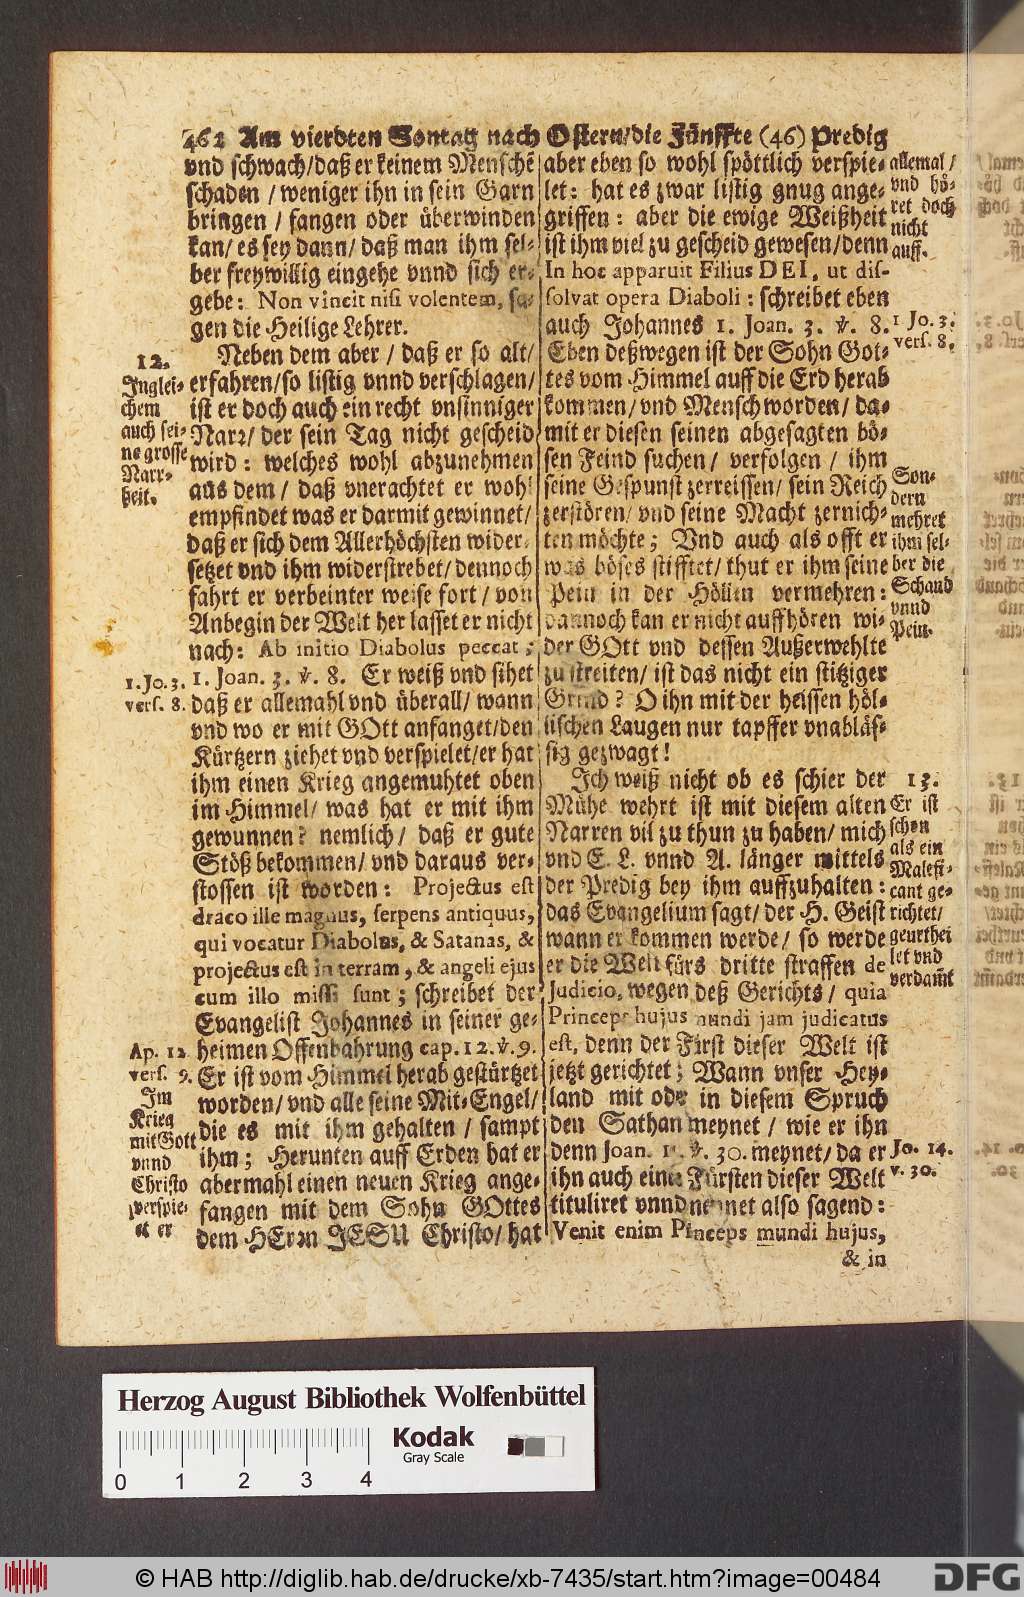 462 Am vierdten Sontag nach Ostern/die Fünffte (46) Predig
vnd schwach/daß er keinem Menschẽ
schaden / weniger ihn in sein Garn
bringen / fangen oder überwinden
kan/ es sey dann/ daß man ihm sel-
ber freywillig eingehe vnnd sich er-
gebe: Non vincit nisi volentem, sa-
gen die Heilige Lehrer.
Neben dem aber / daß er so alt/
erfahren/so listig vnnd verschlagen/
ist er doch auch ein recht vnsinniger
Narr/ der sein Tag nicht gescheid
wird: welches wohl abzunehmen
aus dem / daß vnerachtet er wohl
empfindet was er darmit gewinnet/
daß er sich dem Allerhöchsten wider-
setzet vnd ihm widerstrebet/ dennoch
fahrt er verbeinter weise fort/ von
Anbegin der Welt her lasset er nicht
nach: Ab initio Diabolus peccat;
1. Joan. 3. ℣. 8. Er weiß vnd sihet
daß er allemahl vnd überall/ wann
vnd wo er mit GOtt anfanget/den
Kürtzern ziehet vnd verspielet/er hat
ihm einen Krieg angemuhtet oben
im Himmel/ was hat er mit ihm
gewunnen? nemlich/ daß er gute
Stöß bekommen/ vnd daraus ver-
stossen ist worden: Projectus est
draco ille magnus, serpens antiquus,
qui vocatur Diabolus, & Satanas, &
projectus est in terram, & angeli ejus
cum illo missi sunt; schreibet der
Evangelist Johannes in seiner ge-
heimen Offenbahrung cap. 12. ℣. 9.
Er ist vom Himmel herab gestürtzet
worden/ vnd alle seine Mit-Engel/
die es mit ihm gehalten / sampt
ihm; Herunten auff Erden hat er
abermahl einen neuen Krieg ange-
fangen mit dem Sohn GOttes
dem HErrn JESU Christo/ hat
12.
Inglei-
chem
auch sei-
ne grosse
Narr-
heit.
1. Jo. 3.
vers. 8.
Ap. 12
vers. 9.
Im
Krieg
mit Gott
vnnd
Christo
verspie-
et er
aber eben so wohl spöttlich verspie-
let: hat es zwar listig gnug ange-
griffen: aber die ewige Weißheit
ist ihm viel zu gescheid gewesen/denn
In hoc apparuit Filius DEI, ut dis-
solvat opera Diaboli: schreibet eben
auch Johannes 1. Joan. 3. ℣. 8.
Eben deßwegen ist der Sohn Got-
tes vom Himmel auff die Erd herab
kommen/ vnd Mensch worden/ da-
mit er diesen seinen abgesagten bö-
sen Feind suchen/ verfolgen / ihm
seine Gespunst zerreissen/ sein Reich
zerstören/ vnd seine Macht zernich-
ten möchte; Vnd auch als offt er
was böses stifftet/ thut er ihm seine
Pein in der Höllen vermehren:
dannoch kan er nicht auffhören wi-
der GOtt vnd dessen Außerwehlte
zu streiten/ ist das nicht ein stitziger
Grind? O ihn mit der heissen höl-
lischen Laugen nur tapffer vnabläs-
sig gezwagt!
Ich weiß nicht ob es schier der
Mühe wehrt ist mit diesem alten
Narren vil zu thun zu haben/ mich
vnd E. L. vnnd A. länger mittels
der Predig bey ihm auffzuhalten:
das Evangelium sagt/ der H. Geist
wann er kommen werde/ so werde
er die Welt fürs dritte straffen de
Judicio, wegen deß Gerichts/ quia
Princeps hujus mundi jam judicatus
est, denn der Fürst dieser Welt ist
jetzt gerichtet; Wann vnser Hey-
land mit oder in diesem Spruch
den Sathan meynet / wie er ihn
denn Joan. 14. ℣. 30. meynet/ da er
ihn auch einen Fürsten dieser Welt
tituliret vnnd nennet also sagend:
Venit enim Princeps mundi hujus,
& in
allemal/
vnd hö-
ret doch
nicht
auff.
1 Jo. 3.
vers. 8.
Son-
dern
mehret
ihm sel-
ber die
Schand
vnnd
Pein.
13.
Er ist
schon
als ein
Malefi-
cant ge-
richtet/
geurthei
let vnd
verdamt
Jo. 14.
v. 30.
Herzog August Bibliothek Wolfenbüttel
Kodak
Gray Scale
0 1 2 3 4
© HAB http://diglib.hab.de/drucke/xb-7435/start.htm?image=00484
DFG